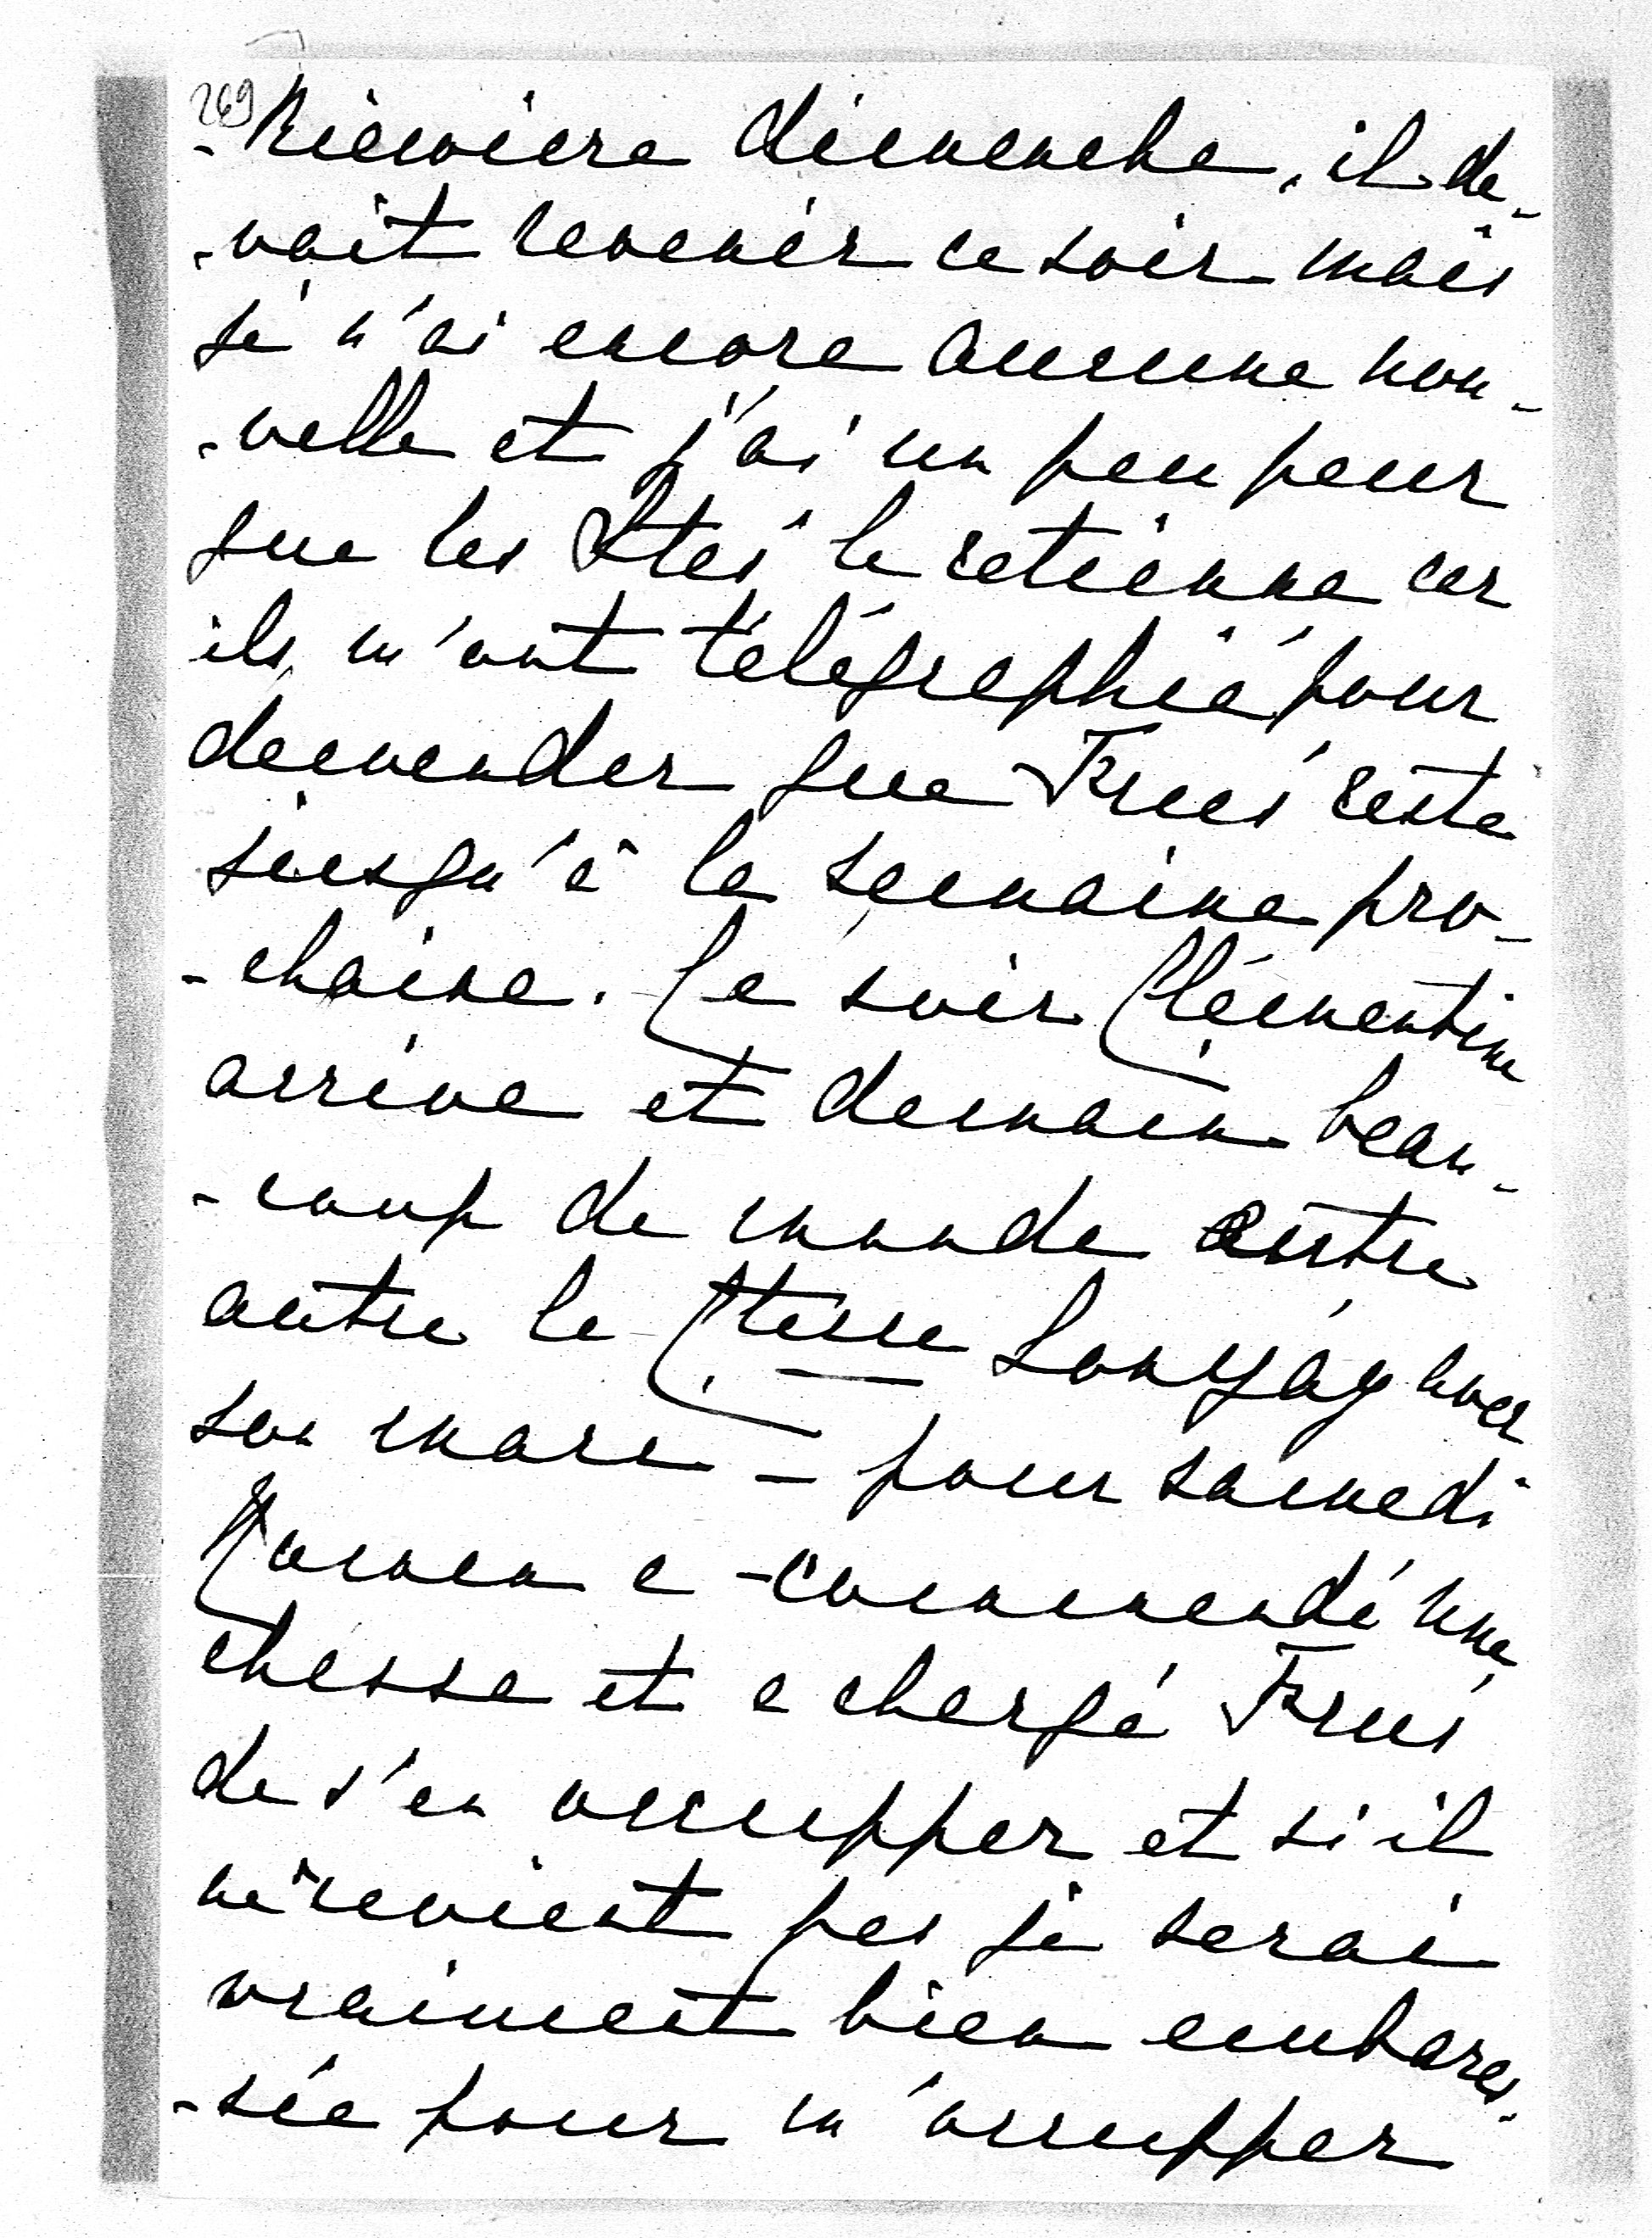 269
- Niewiera dimanche, il de-
-vait revenir ce soir mais
je n'ai encore aucune nou-
-velle et j'ai un peu peur
que les Ctes le retienne car
ils m'ont télégraphié pour
demander que Frici reste
jusqu'à la semaine pro-
-chaine. Ce soir Clémentine
arrive et demain beau-
-coup de monde entre
autre la Ctesse Lonyay avec
son mari – pour samedi
a commendé une
chasse et a chargé Frici
de s'en occupper et si il
ne revient pas je serai
vraiment bien embaras-
-sée pour m'occupper